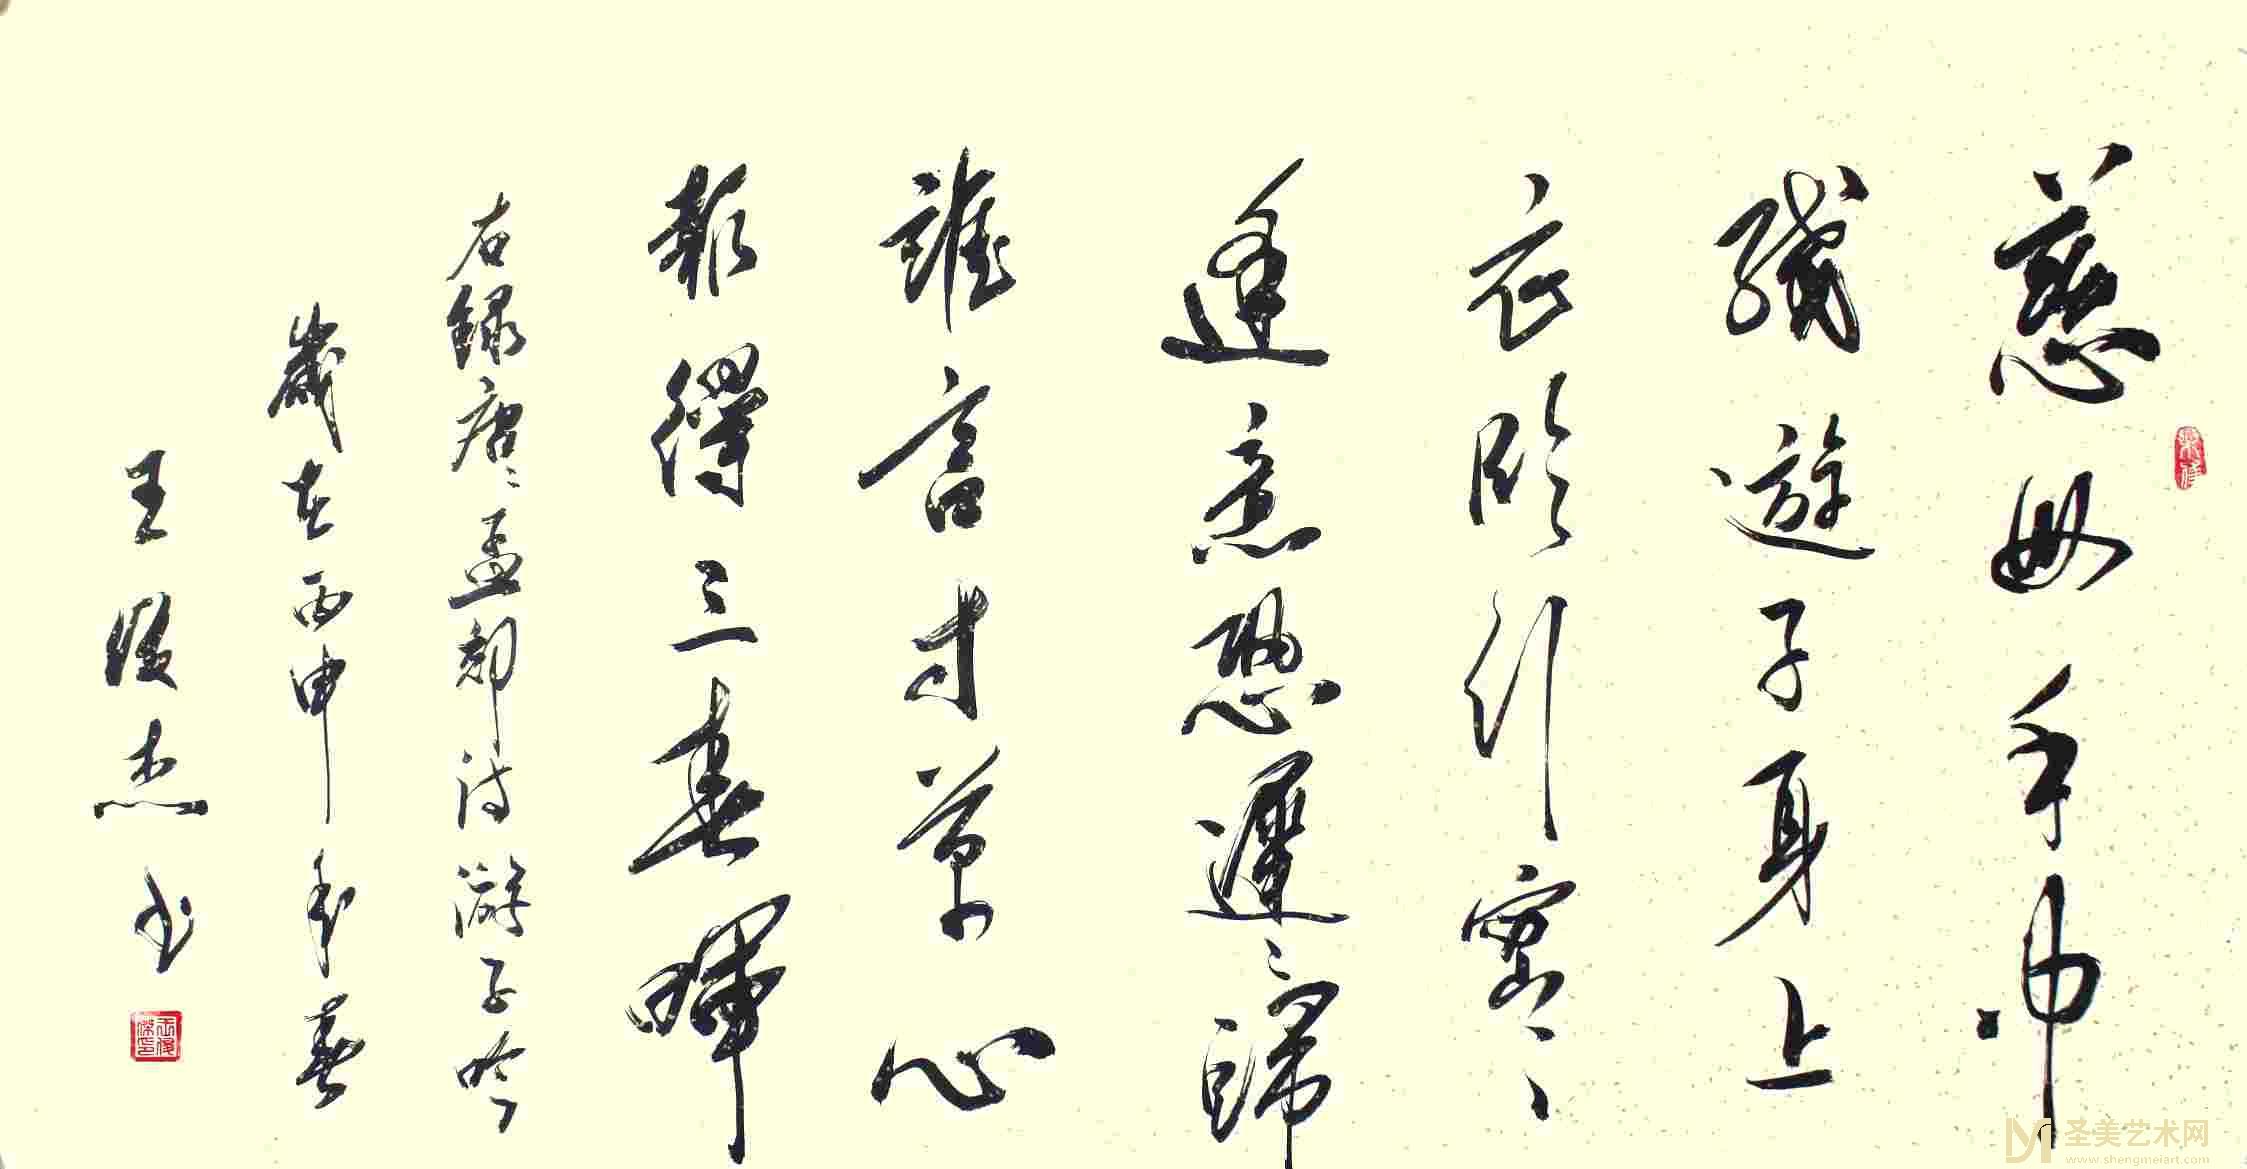 慈母手中
綫遊子身上
衣临行密〻
逢意恐遲〻歸
誰言寸草心
報得三春暉
右錄唐〻孟郊诗游子吟
歲在丙申年春
王俊杰书
王俊傑印
圣美艺术网
www.shengmeiart.com